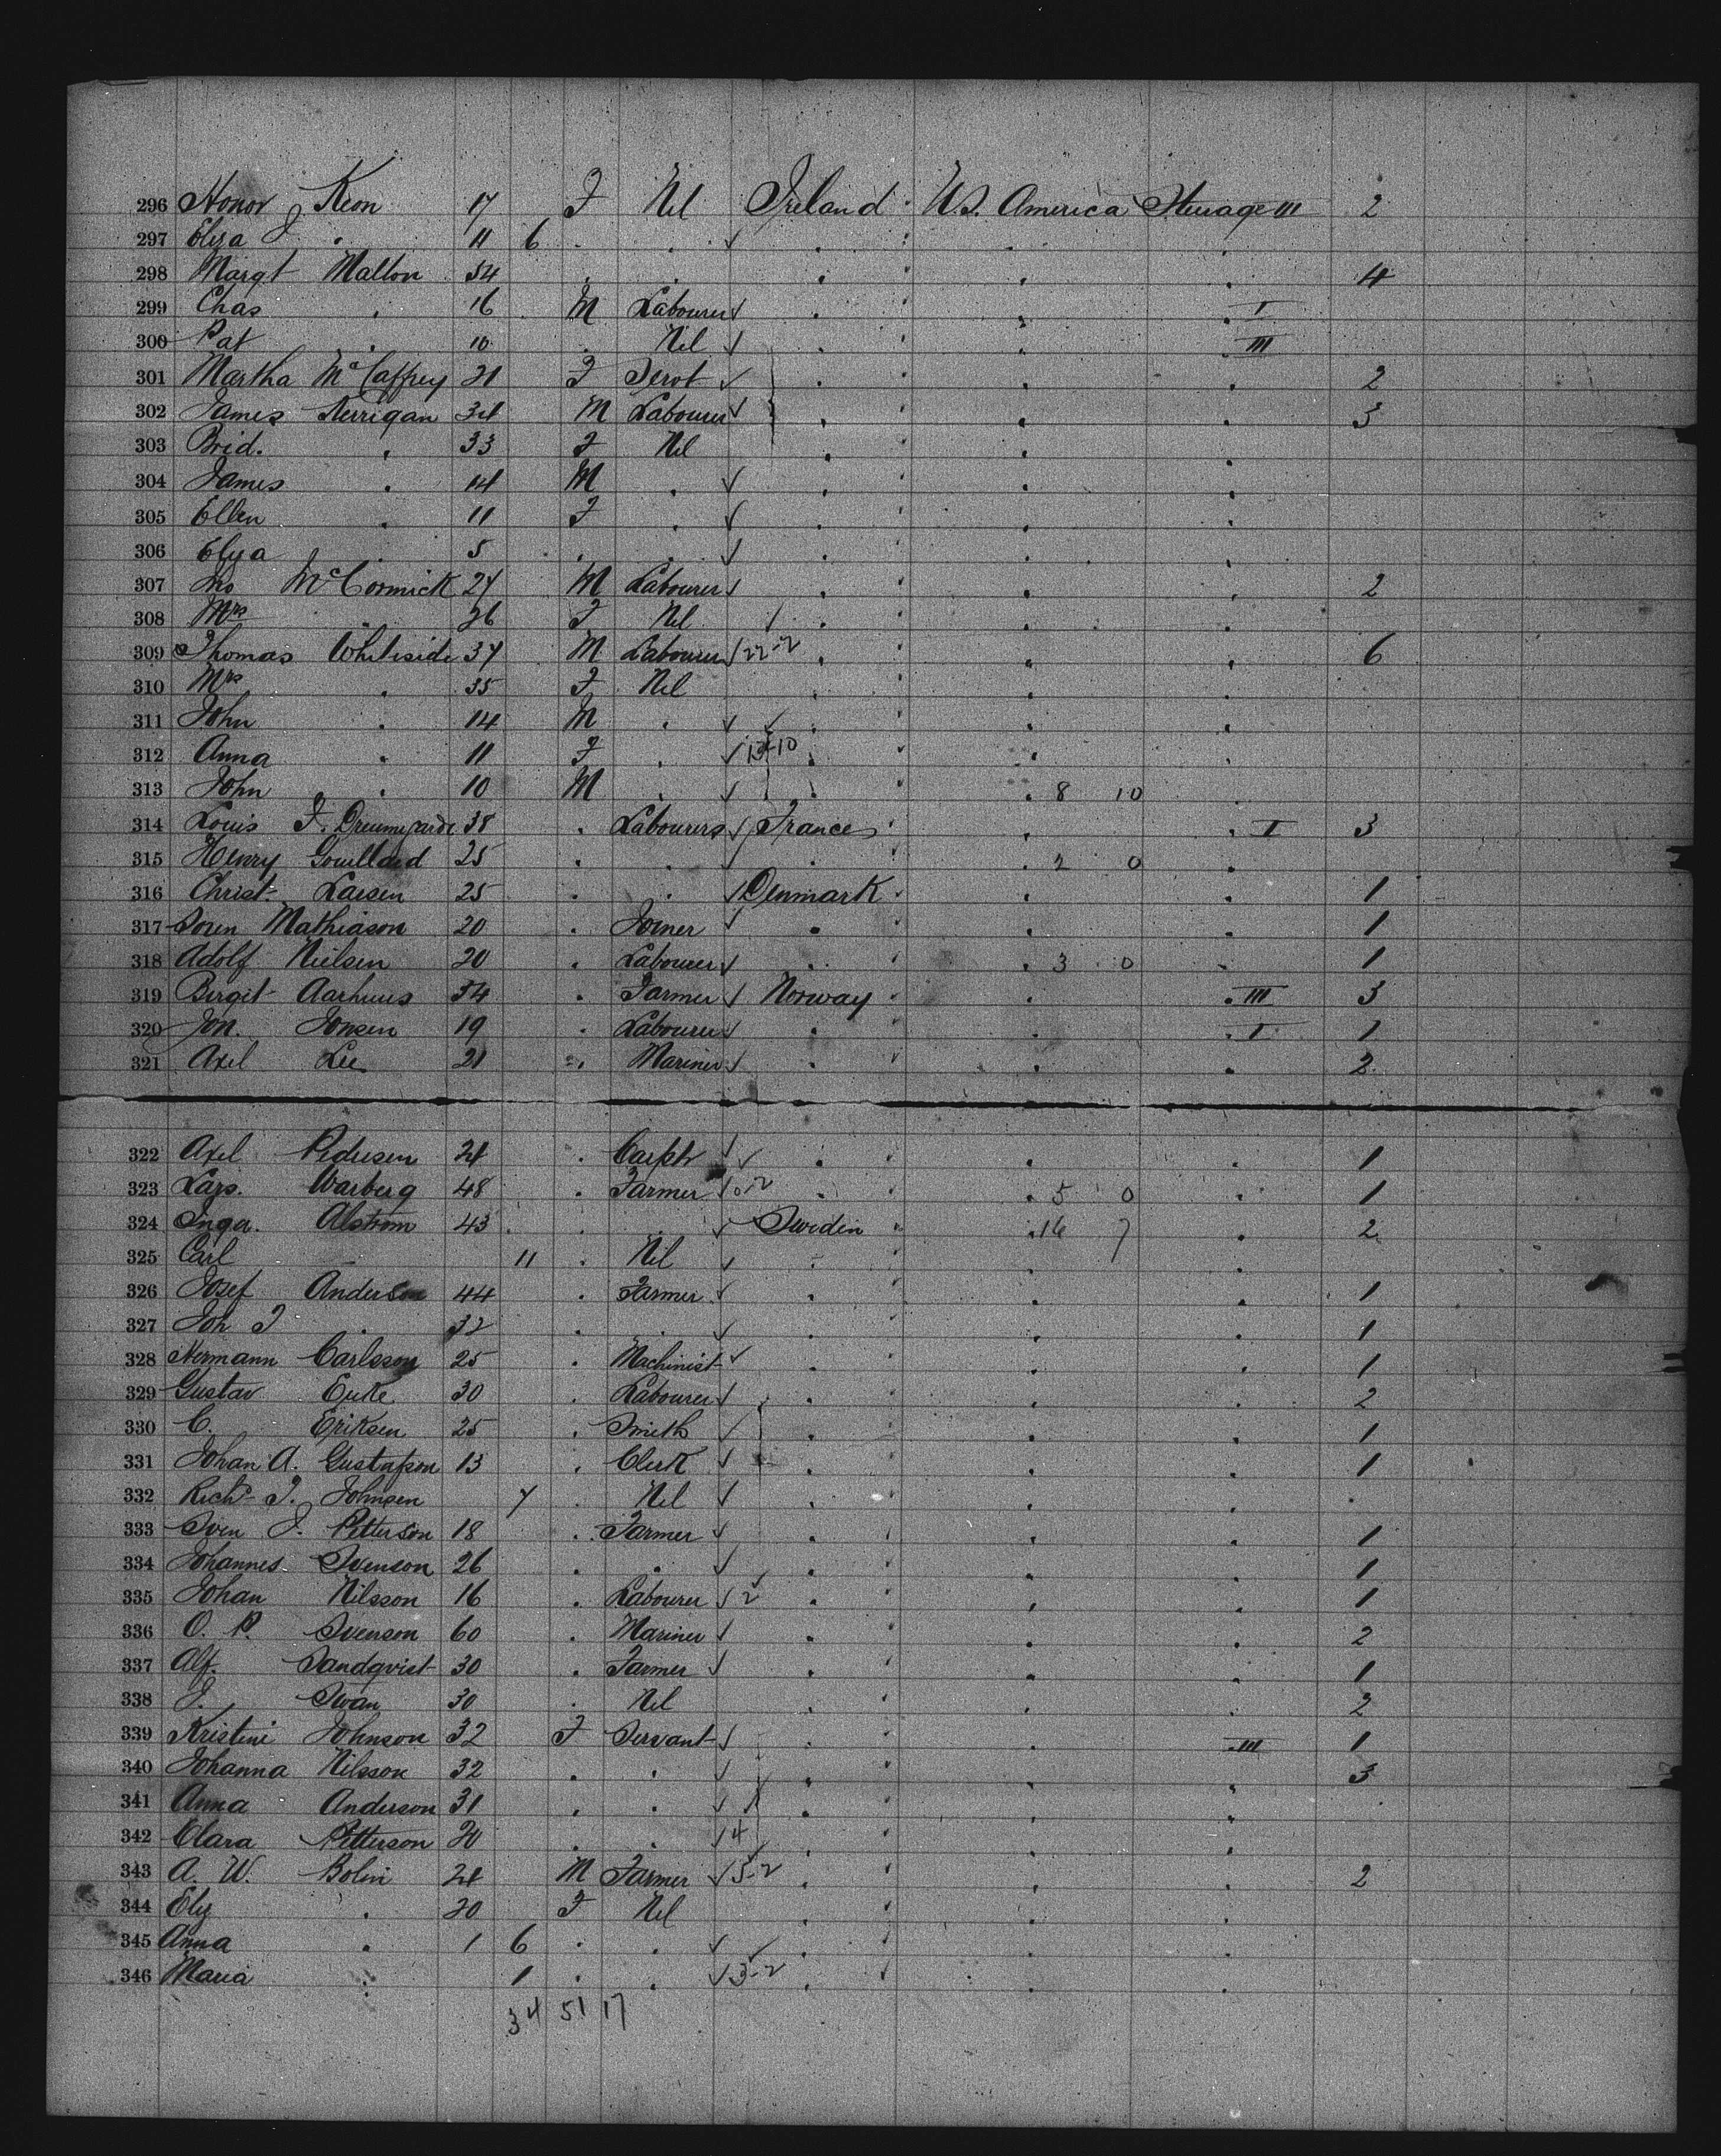 296 Honor Keon 17 F Nil Ireland U.S. America Steerage III 2
297 Eliza J. " 11 6 " " " " "
298 Margt Mallon 54 " " " " " 4
299 Chas " 16 M Labourer " " " I
300 Pat " 10 " Nil " " " III
301 Martha McCaffrey 21 F Servt " " " 2
302 James Kerrigan 34 M Labourer " " " 3
303 Brid. " 33 F Nil " " "
304 James " 14 M " " " "
305 Ellen " 11 F " " " "
306 Eliza " 5 " " " " "
307 Jno McCormick 27 M Labourer " " " 2
308 Mrs " 26 F Nil " " "
309 Thomas Whiteside 37 M Labourer 22-2 " " " 6
310 Mrs " 35 F Nil " " "
311 John " 14 M " " " "
312 Anna " 11 F " 13-10 " " "
313 John " 10 M " " " 8 10 "
314 Louis J. 38 " Labourers France " " I 3
315 Henry Gouillard 25 " " " " 2 0
316 Christ. Larsen 25 " " Denmark " " 1
317 Soren Mathiason 20 " Joiner " " " 1
318 Adolf Nielsen 20 " Labourer " " 3 0 " 1
319 Birgit Aarhuus 54 " Farmer Norway " " III 3
320 Jon. Jonsen 19 " Labourer " " " I 1
321 Axel Lie 21 " Mariner " " " 2
322 Axel Pedersen 24 " Carptr " " " 1
323 Lars. Warberg 48 " Farmer 10-2 " " 5 0 " 1
324 Inga. Alstrom 43 " " Sweden " 16 7 " 2
325 Carl " 11 " Nil " " "
326 Josef Anderson 44 " Farmer " " " 1
327 Joh J " 32 " " " " " 1
328 Hermann Carlsson 25 " Machinist " " " 1
329 Gustav Erike 30 " Labourer " " " 2
330 C. Eriksen 25 " Smith " " " 1
331 Johan A. Gustafson 13 " Clerk " " " 1
332 Richd J. Johnsen 7 " Nil " " " "
333 Sven J. Petterson 18 " Farmer " " " 1
334 Johannes Svenson 26 " " " " " 1
335 Johan Nilsson 16 " Labourer 2 " " " 1
336 O. P. Svenson 60 " Mariner " " " 2
337 Alf. Sandqvist 30 " Farmer " " " 1
338 J. Svan 30 " Nil " " " 2
339 Kristini Johnson 32 F Servant " " " III 1
340 Johanna Nilsson 32 " " " " " 3
341 Anna Anderson 31 " " " " "
342 Clara Petterson 20 " " 4 " " "
343 A. W. Bolin 24 M Farmer 5-2 " " " 2
344 Eliz " 20 F Nil " " "
345 Anna " 1 6 " " " " "
346 Maria " 1 " " 3-2 " " "
34 51 17